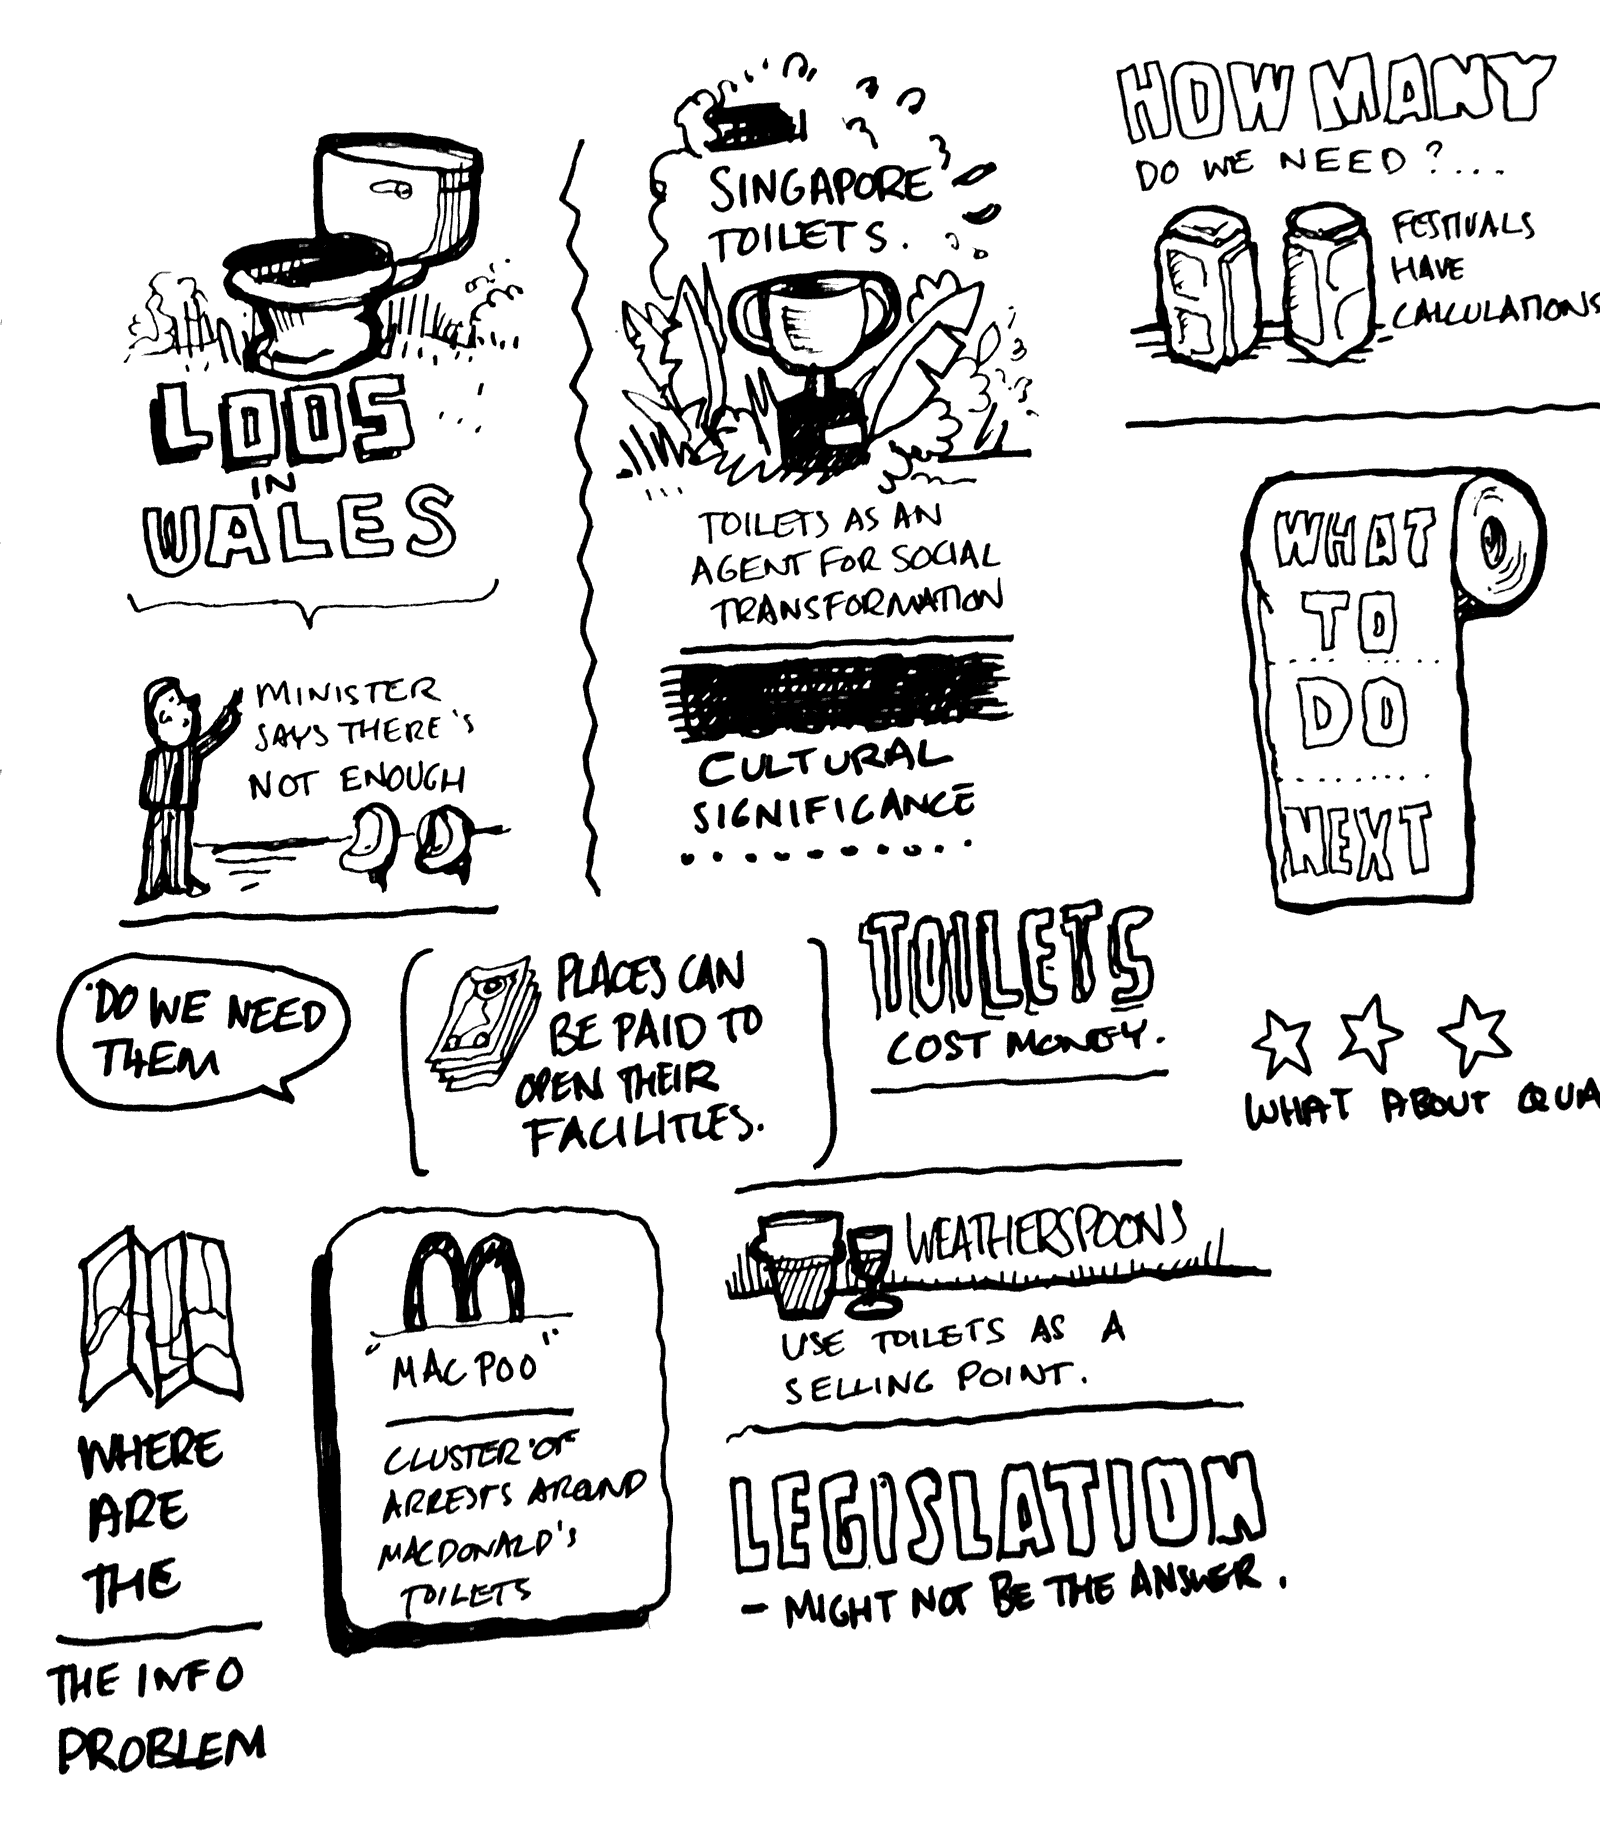 LOOS
IN
WALES
MINISTER
SAYS THERE'S
NOT ENOUGH
SINGAPORE
TOILETS.
TOILETS AS AN
AGENT FOR SOCIAL
TRANSFORMATION
CULTURAL
SIGNIFICANCE
HOW MANY
DO WE NEED?....
FESTIVALS
HAVE
CALCULATIONS
WHAT
TO
DO
NEXT
'DO WE NEED
THEM
PLACES CAN
BE PAID TO
OPEN THEIR
FACILITIES.
TOILETS
COST MONEY.
WHAT ABOUT QUA
WHERE
ARE
THE
THE INFO
PROBLEM
M
"MAC POO"
CLUSTER OF
ARRESTS AROUND
MACDONALD'S
TOILETS
WEATHERSPOONS
USE TOILETS AS A
SELLING POINT.
LEGISLATION
- MIGHT NOT BE THE ANSWER.